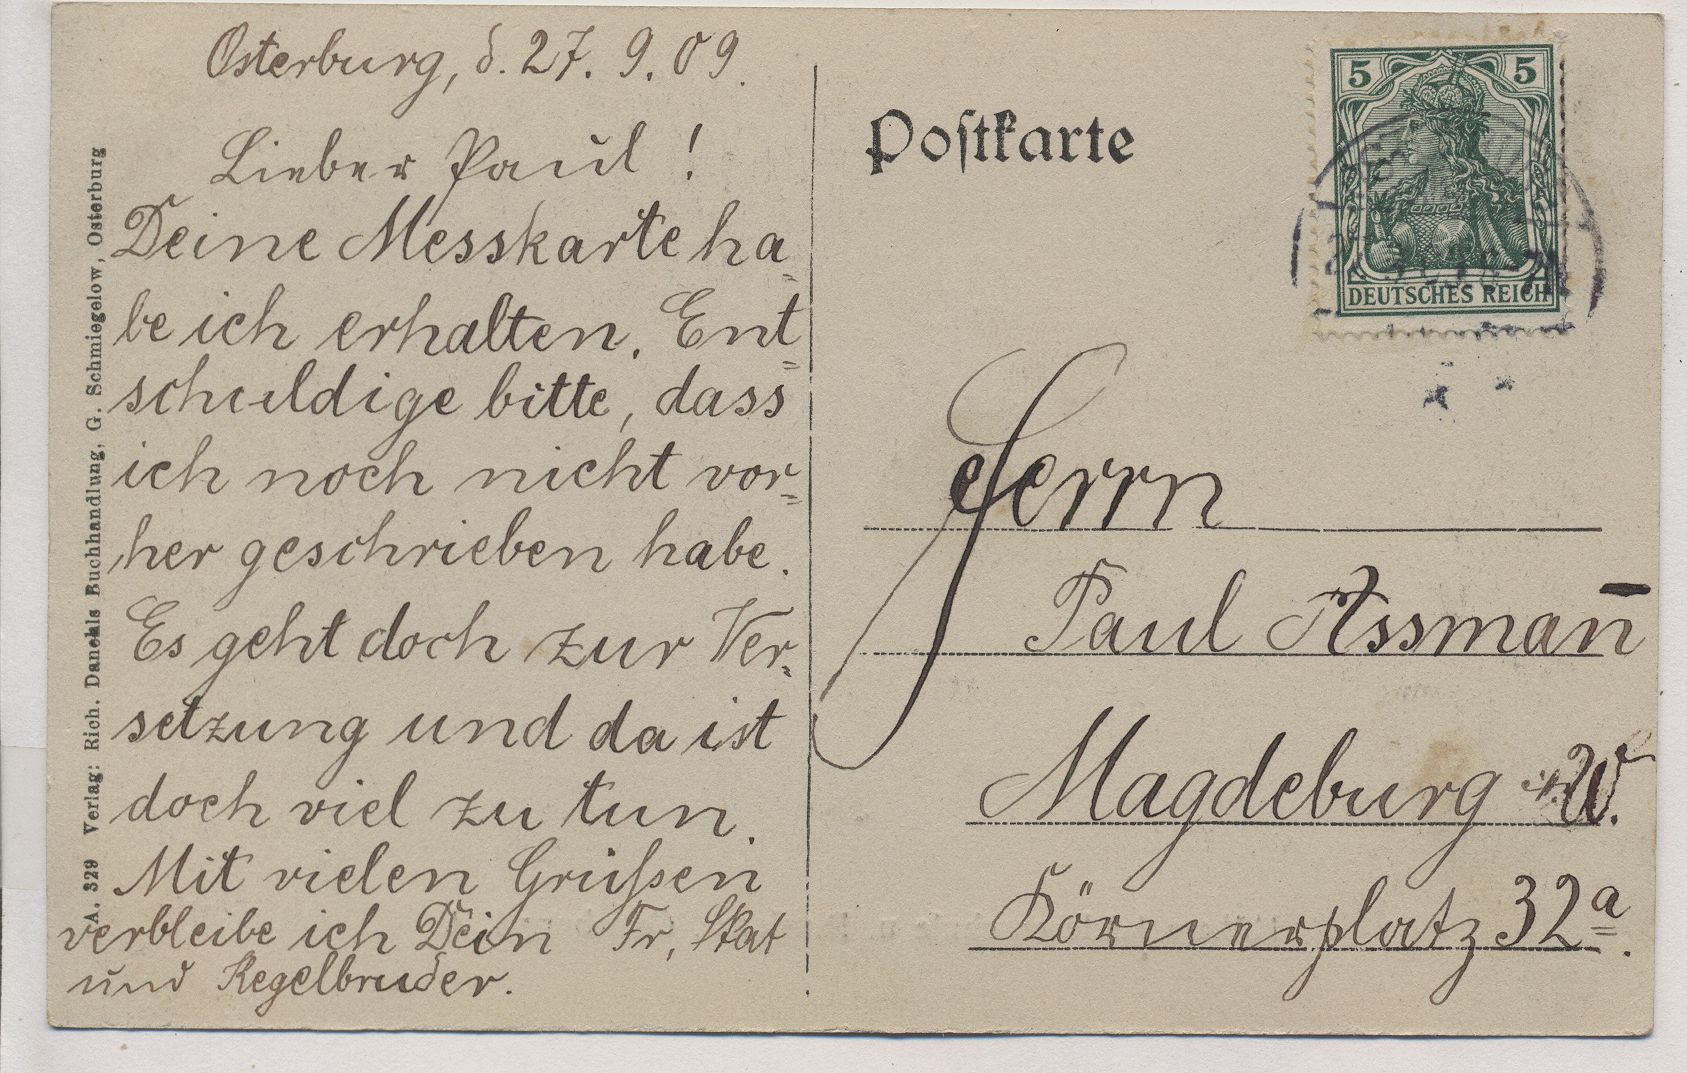 Osterburg, d. 27. 9. 09.
Lieber Paul !
Deine Messkarte ha=
be ich erhalten. Ent=
schuldige bitte, dass
ich noch nicht vor=
her geschrieben habe.
Es geht doch zur Ver=
setzung und da ist
doch viel zu tun.
Mit vielen Grüßen
verbleibe ich Dein Fr, Skat
und Kegelbruder.
A. 329 Verlag: Rich. Danehls Buchhandlung, G. Schmiegelow, Osterburg
Postkarte
5 5
DEUTSCHES REICH
Herrn
Paul Assman̄
Magdeburg W.
Körnerplatz 32a.